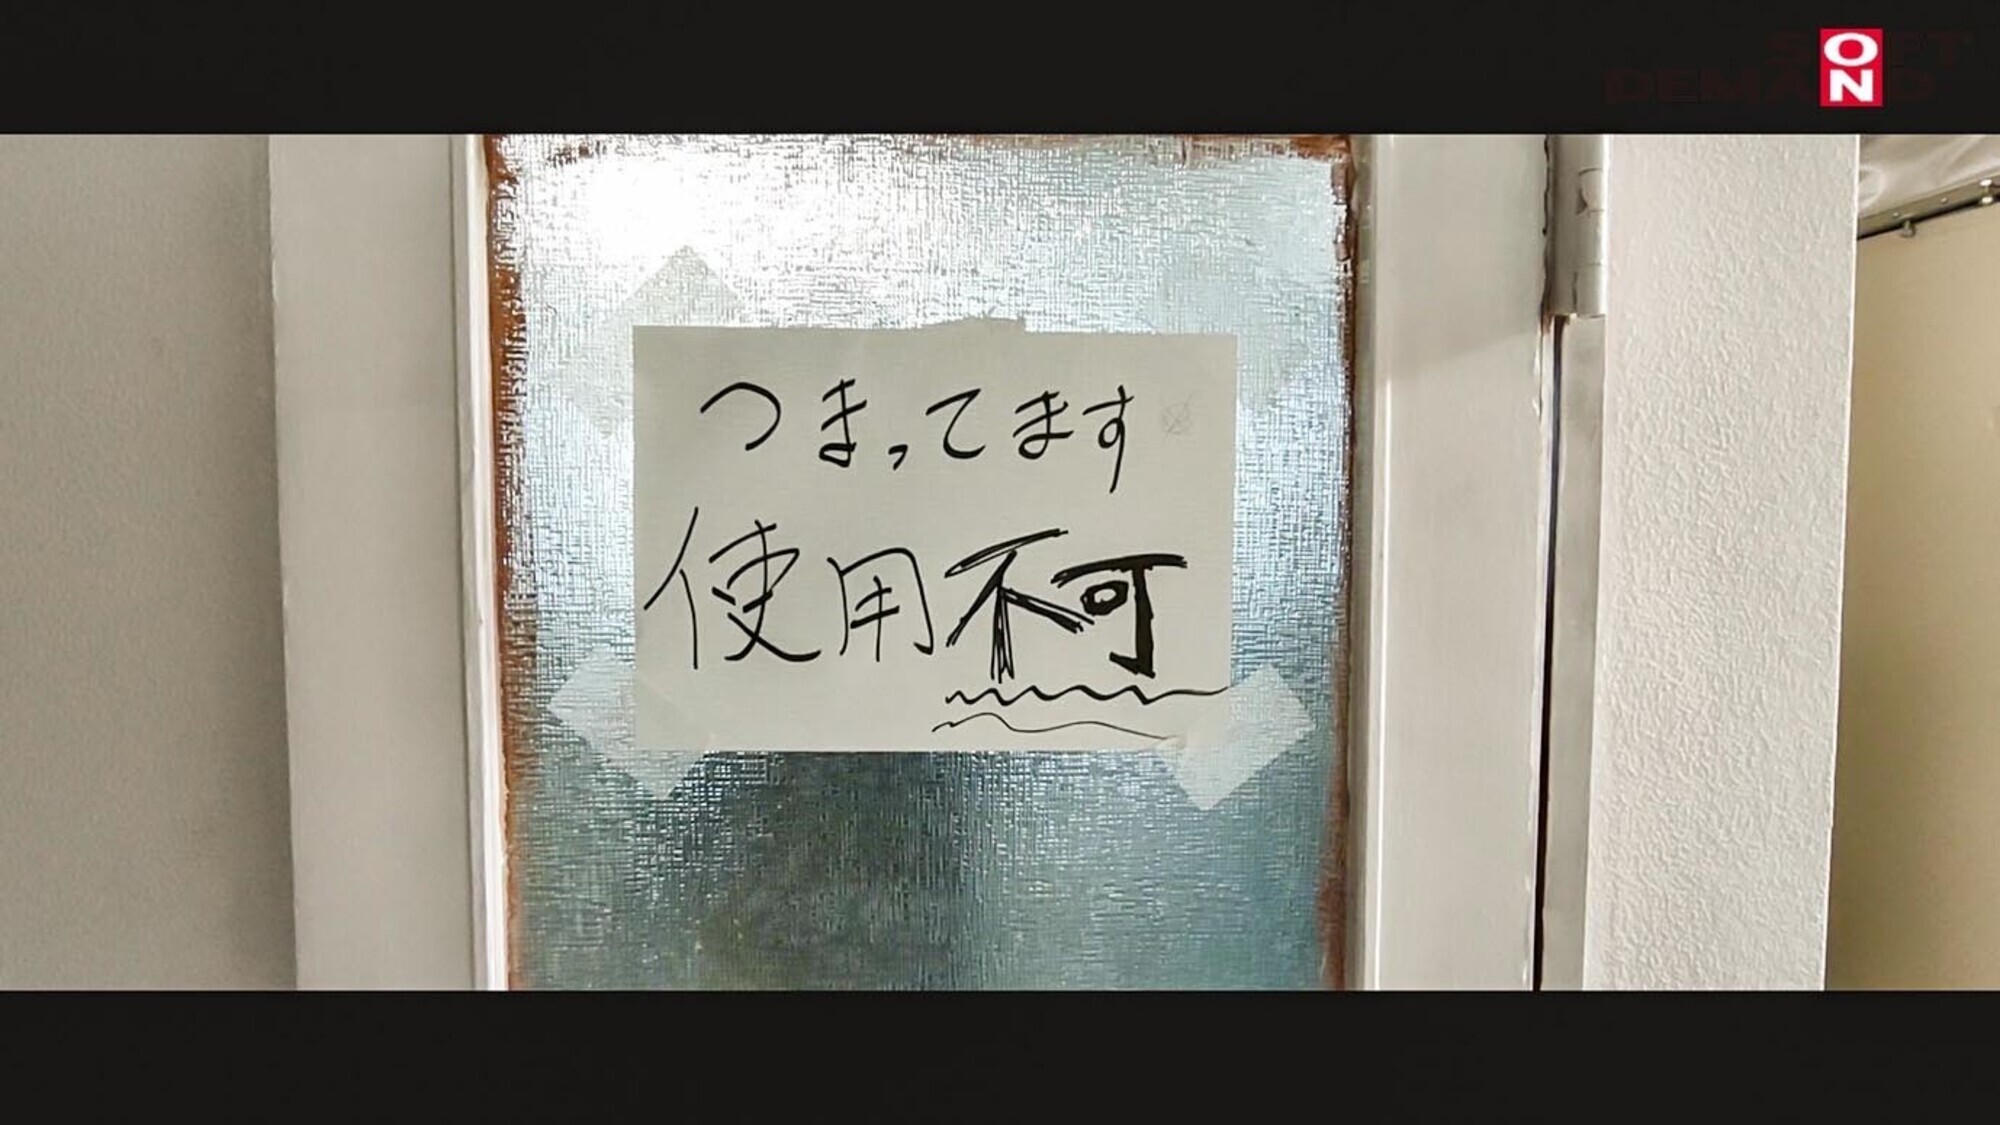 SOFT
ON
DEMAND
つまってます
使用不可